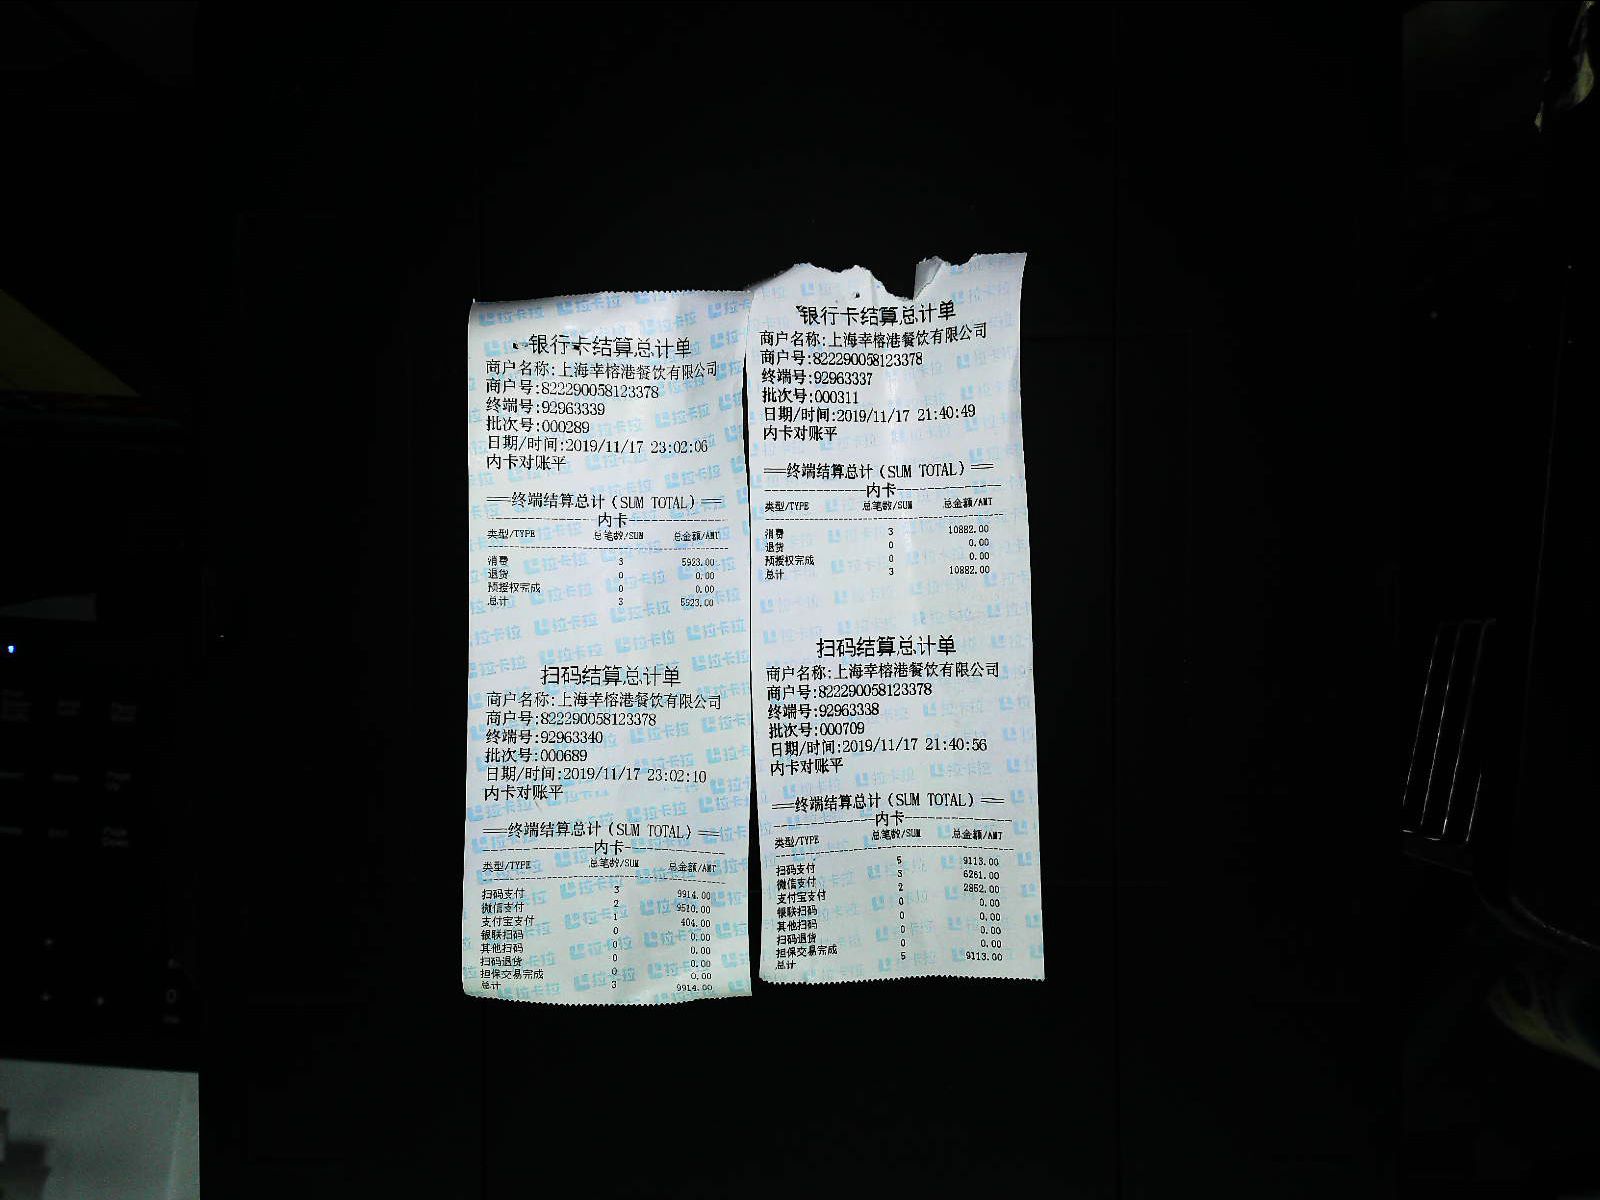 银行卡结算总计单
商户名称:上海幸榕港餐饮有限公司
商户号:822290058123378
终端号:92963339
批次号:000289
日期/时间:2019/11/17 23:02:06
内卡对账平
==终端结算总计(SUM TOTAL)==
内卡
类型/TYPE 总笔数/SUM 总金额/AMT
消费 3 5923.00
退货 0 0.00
预授权完成 0 0.00
总计 3 5923.00
扫码结算总计单
商户名称:上海幸榕港餐饮有限公司
商户号:822290058123378
终端号:92963340
批次号:000689
日期/时间:2019/11/17 23:02:10
内卡对账平
==终端结算总计(SUM TOTAL)==
内卡
类型/TYPE 总笔数/SUM 总金额/AMT
扫码支付 3 9914.00
微信支付 2 9510.00
支付宝支付 1 404.00
银联扫码 0 0.00
其他扫码 0 0.00
扫码退货 0 0.00
担保交易完成 0 0.00
总计 3 9914.00
银行卡结算总计单
商户名称:上海幸榕港餐饮有限公司
商户号:822290058123378
终端号:92963337
批次号:000311
日期/时间:2019/11/17 21:40:49
内卡对账平
==终端结算总计(SUM TOTAL)==
内卡
类型/TYPE 总笔数/SUM 总金额/AMT
消费 3 10882.00
退货 0 0.00
预授权完成 0 0.00
总计 3 10882.00
扫码结算总计单
商户名称:上海幸榕港餐饮有限公司
商户号:822290058123378
终端号:92963338
批次号:000709
日期/时间:2019/11/17 21:40:56
内卡对账平
==终端结算总计(SUM TOTAL)==
内卡
类型/TYPE 总笔数/SUM 总金额/AMT
扫码支付 5 9113.00
微信支付 3 6261.00
支付宝支付 2 2852.00
银联扫码 0 0.00
其他扫码 0 0.00
扫码退货 0 0.00
担保交易完成 0 0.00
总计 5 9113.00